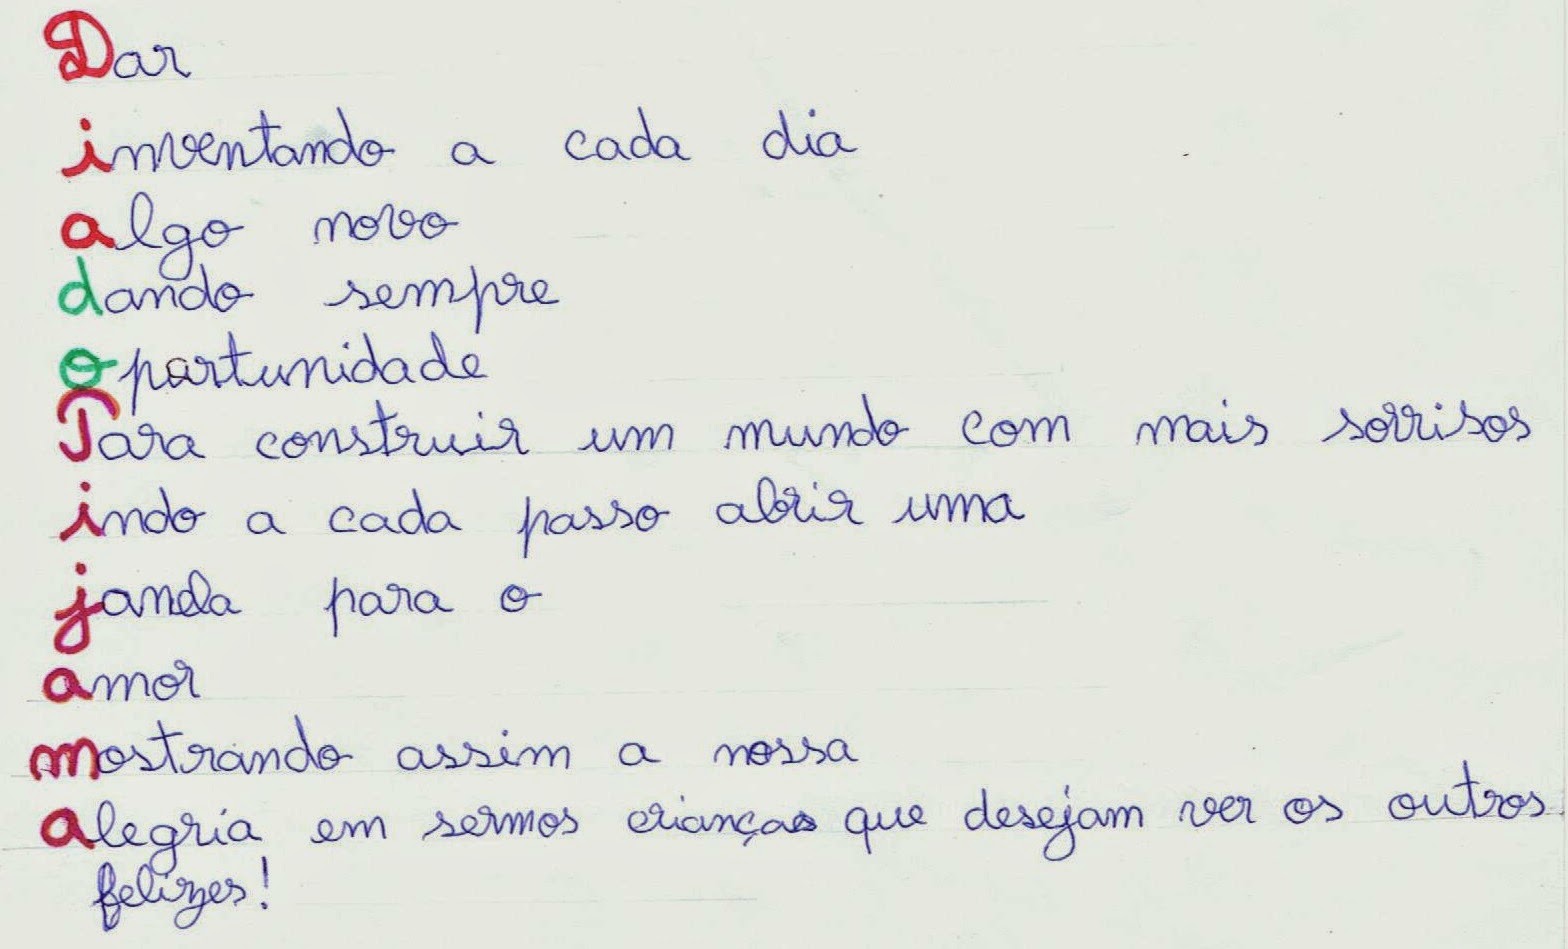 Dar
inventando a cada dia
algo novo
dando sempre
opartunidade
Para construir um mundo com mais sorrisos
indo a cada passo abrir uma
janela para o
amor
mostrando assim a nossa
alegria em sermos crianças que desejam ver os outros
felizes!